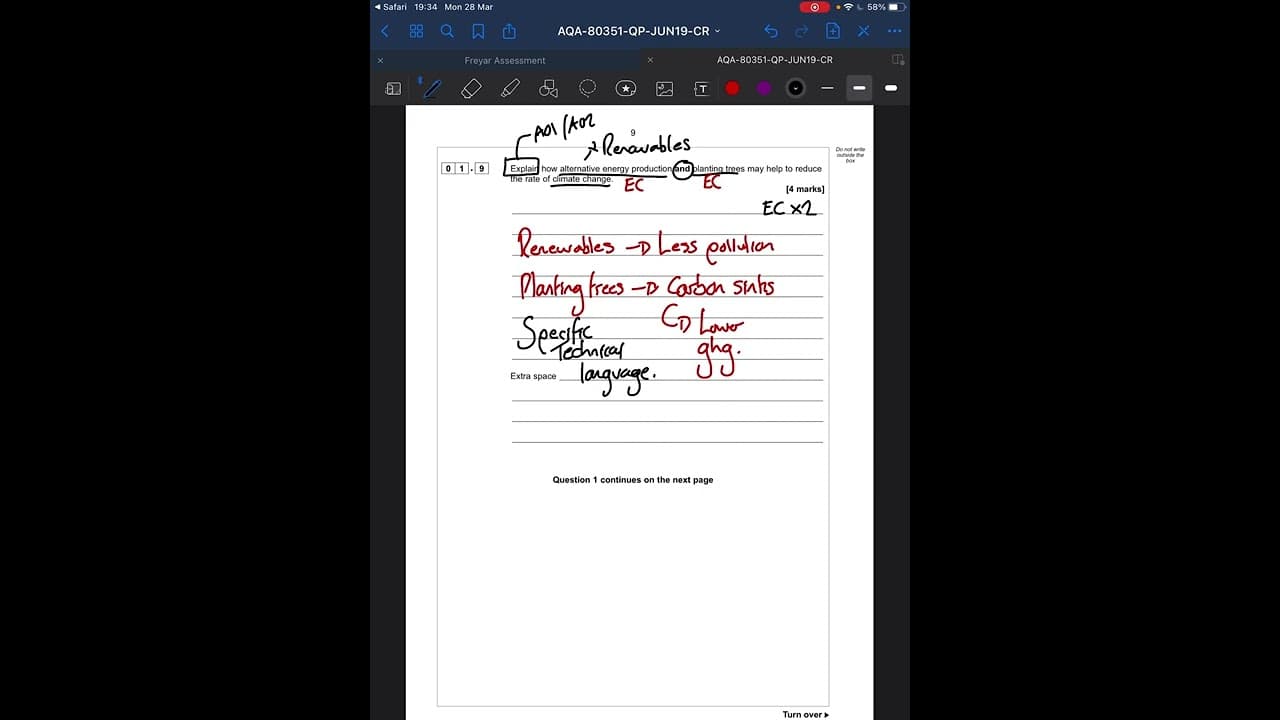 Safari 19:34 Mon 28 Mar 58%
AQA-80351-QP-JUN19-CR
Freyar Assessment AQA-80351-QP-JUN19-CR
T
AO1/AO2
9
Renewables
Do not write
outside the
box
0 1 . 9 Explain how alternative energy production and planting trees may help to reduce
the rate of climate change.
EC EC
[4 marks]
EC x2
Renewables → Less pollution
Planting trees → Carbon sinks
Lower
ghg.
Specific
Technical
language.
Extra space
Question 1 continues on the next page
Turn over ▶